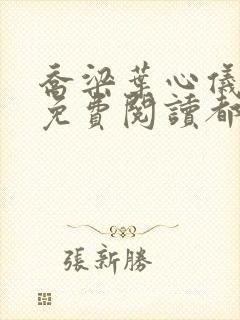 喬梁葉心儀
免費閱讀都
張新勝